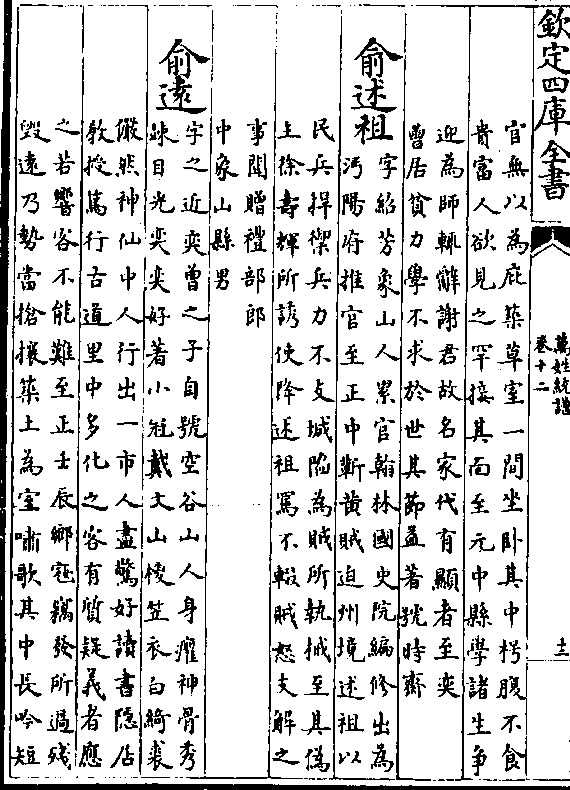 欽定四庫全書
萬姓統譜
卷十二
官無以為庇築草室一間坐卧其中枵腹不食
貴富人欲見之罕接其面至元中縣學諸生争
迎為師輒辭謝君故名家代有顯者至奕
曾居貧力學不求於世其節益著號時齋
俞述祖
字紹芳象山人累官翰林國史院編修出為
沔陽府推官至正中蘄黄賊迫州境述祖以
民兵捍禦兵力不支城陷為賊所執械至其偽
主徐壽輝所誘使降述祖罵不輟賊怒支解之
事聞贈禮部郎
中象山縣男
俞遠
字之近奕曾之子自號空谷山人身癯神骨秀
竦目光奕奕好著小冠戴文山椶笠衣白綺裘
儼然神仙中人行出一市人盡驚好讀書隱居
教授篤行古道里中多化之客有質疑義者應
之若響客不能難至正壬辰鄉寇竊發所過殘
毁遠乃勢當搶攘築土為室嘯歌其中長吟短